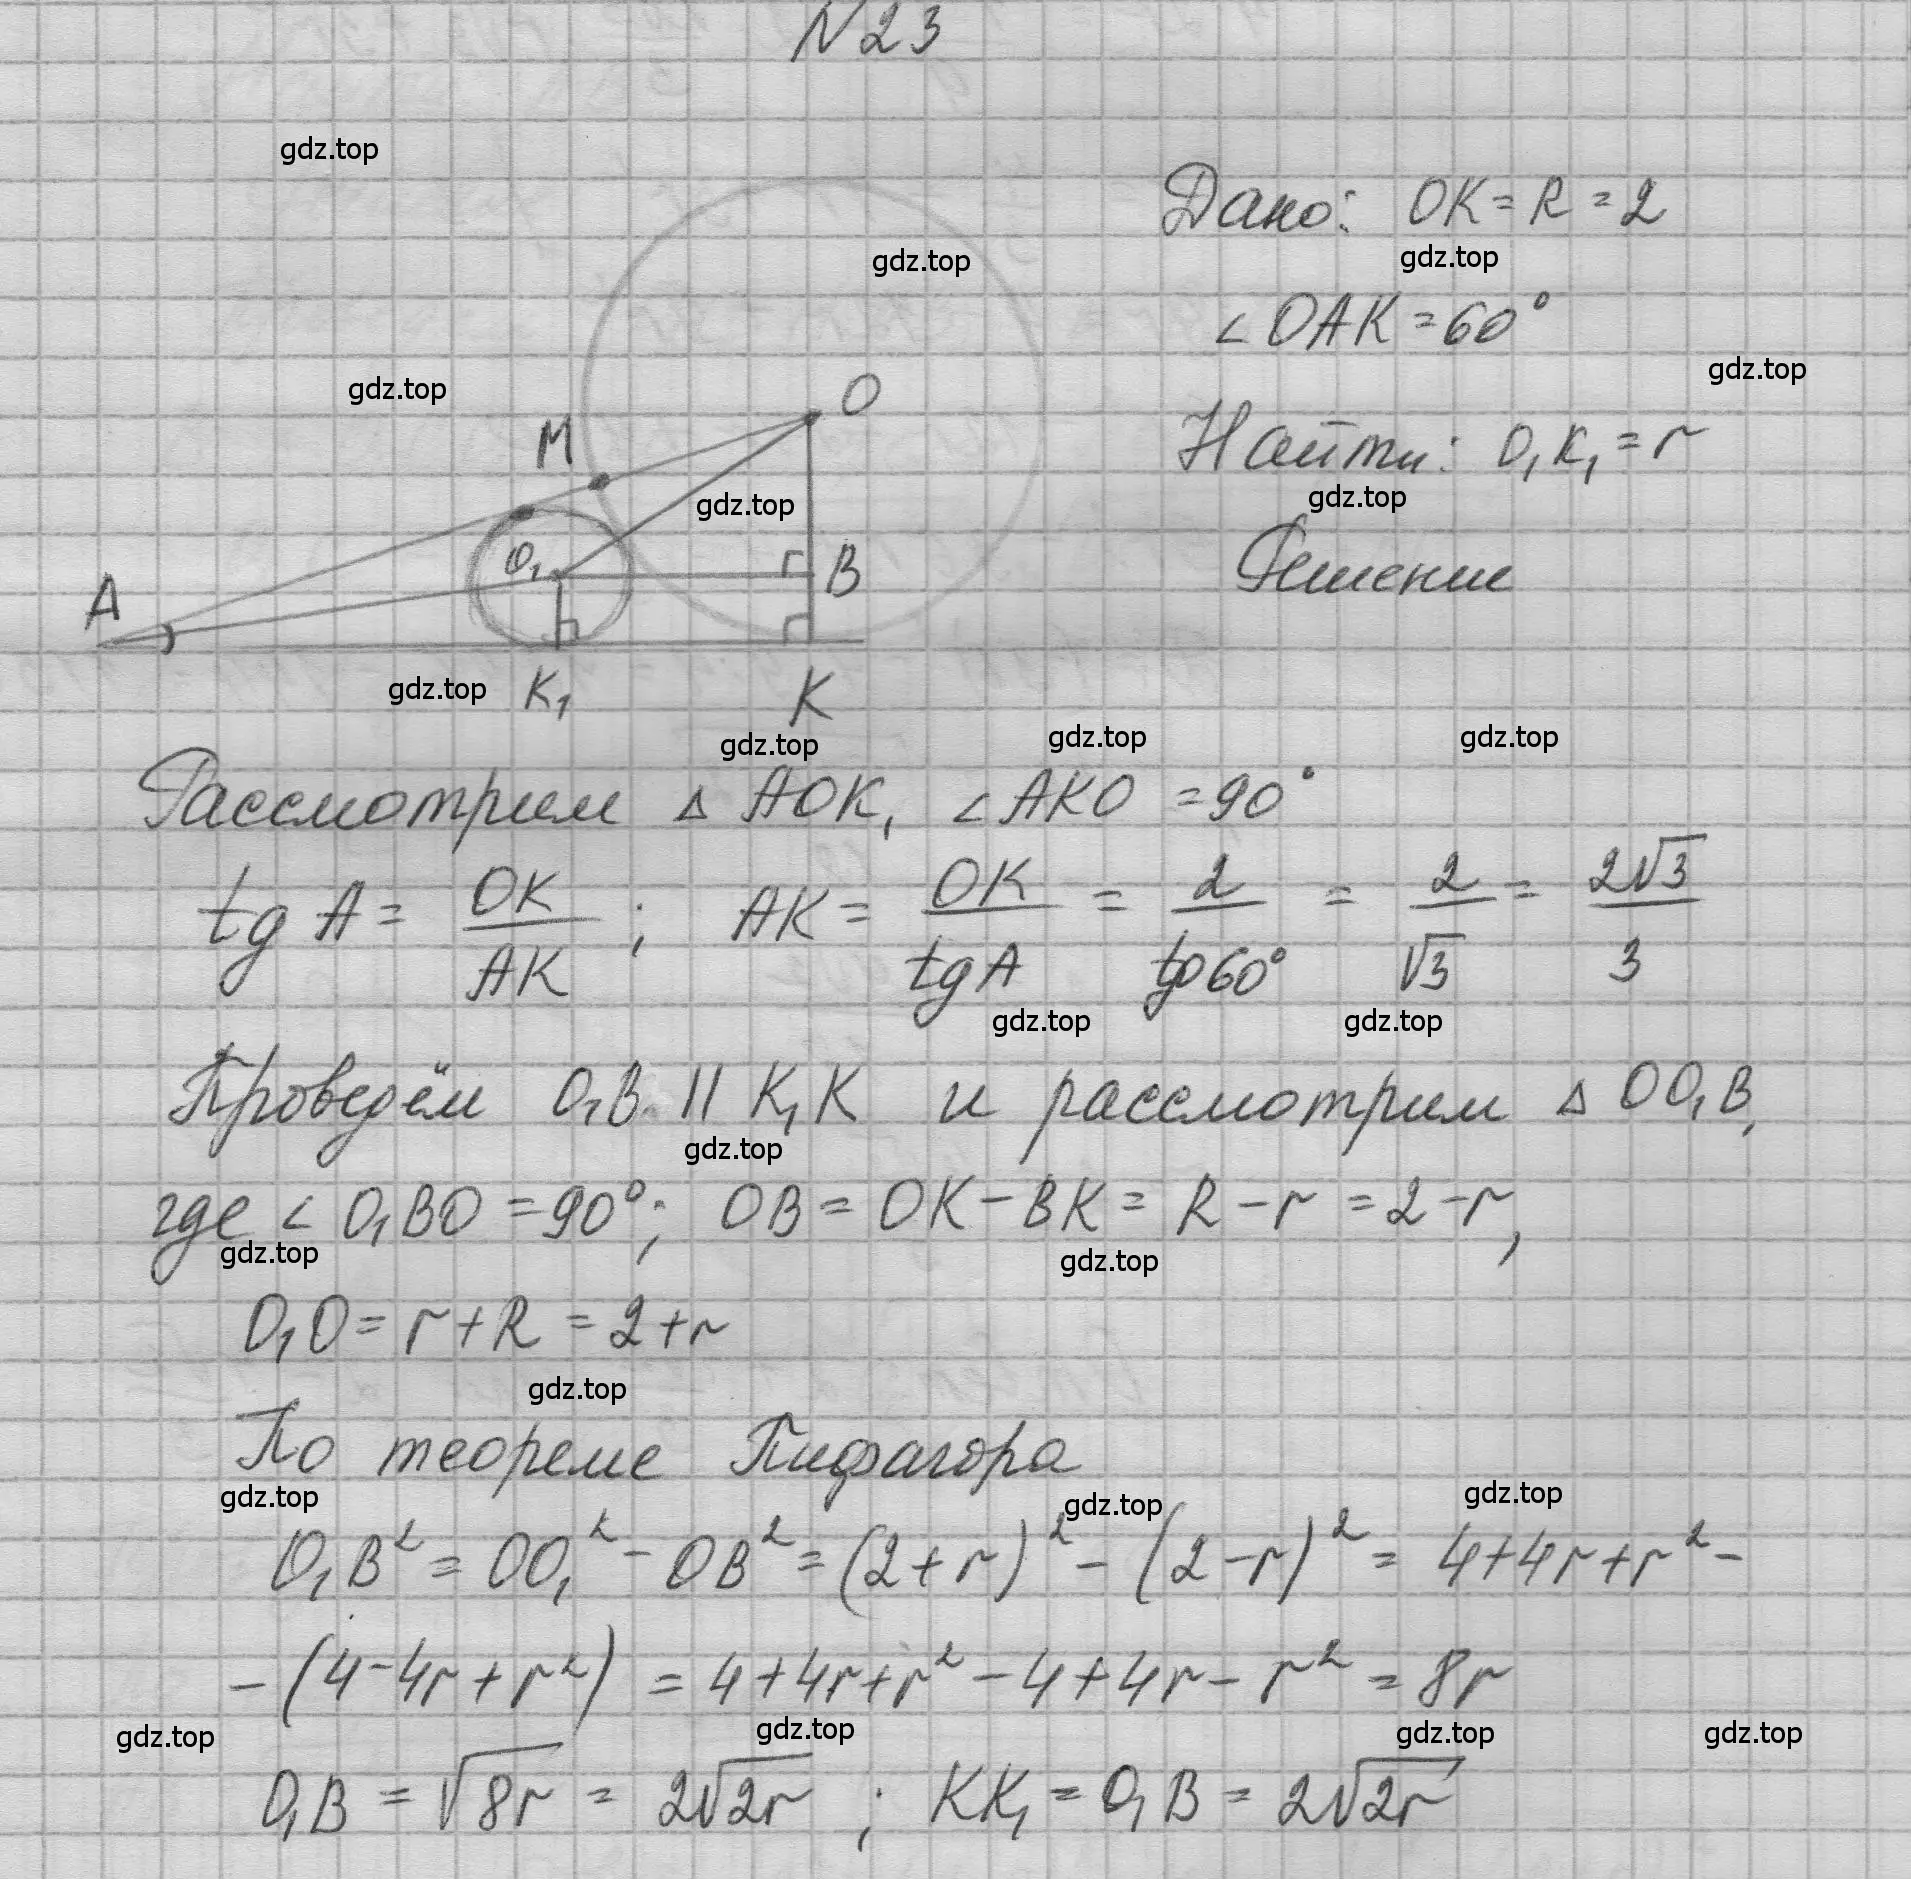 N23
gdz.top
Дано: OK = R = 2
gdz.top
gdz.top
∠OAK = 60°
gdz.top
gdz.top
O
M
Найти: O₁K₁ = r
gdz.top
gdz.top
O₁
B
Решение
A
gdz.top
K₁
K
gdz.top
gdz.top
gdz.top
Рассмотрим △ AOK, ∠AKO = 90°
tg A = OK/AK ; AK = OK/tgA = 2/tg60° = 2/√3 = 2√3/3
gdz.top
gdz.top
Проведём O₁B || K₁K и рассмотрим △ OO₁B,
gdz.top
где ∠ O₁BO = 90°; OB = OK − BK = R − r = 2 − r,
gdz.top
gdz.top
O₁O = r + R = 2 + r
gdz.top
По теореме Пифагора
gdz.top
gdz.top
gdz.top
O₁B² = OO₁² − OB² = (2 + r)² − (2 − r)² = 4 + 4r + r² −
− (4 − 4r + r²) = 4 + 4r + r² − 4 + 4r − r² = 8r
gdz.top
gdz.top
gdz.top
gdz.top
O₁B = √8r = 2√2r ; KK₁ = O₁B = 2√2r